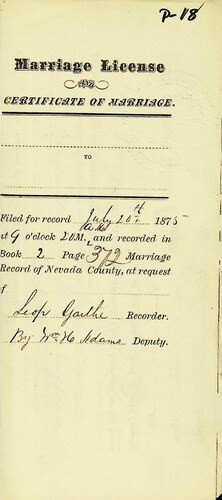 P-18
Marriage License
AND
CERTIFICATE OF MARRIAGE.
TO
Filed for record July 20th 1875
at 9 o'clock 20M. A.M. and recorded in
Book 2 Page 372 Marriage
Record of Nevada County, at request
of
Leop Garthe Recorder.
By Wm H Adams Deputy.